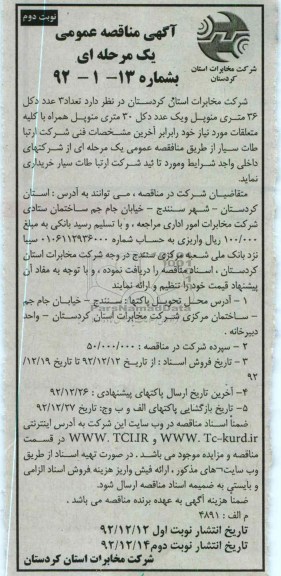 نوبت دوم
آگهی مناقصه عمومی
یک مرحله ای
بشماره ۱۳- ۱ - ۹۲
شرکت مخابرات استان
کردستان
شرکت مخابرات استان کردستان در نظر دارد تعداد۳ عدد دکل
۳۶ متری منوپل ویک عدد دکل ۳۰ متری منوپل همراه با کلیه
متعلقات مورد نیاز خود رابرابر آخرین مشخصات فنی شرکت ارتبا
طات سیار از طریق مناقصه عمومی یک مرحله ای از شرکتهای
داخلی واجد شرایط ومورد تا ئید شرکت ارتبا طات سیار خریداری
نماید.
متقاضیان شرکت در مناقصه ، می توانند به آدرس : استان
کردستان - شهر سنندج - خیابان جام جم ساختمان ستادی
شرکت مخابرات امور اداری مراجعه ، و با تسلیم رسید بانکی به مبلغ
۱۰۰/۰۰۰ ریال واریزی به حساب شماره ۰۱۰۶۱۱۳۹۳۶۰۰۰ سیبا
نزد بانک ملی شعبه مرکزی سنندج در وجه شرکت مخابرات استان
کردستان ، اسناد مناقصه را دریافت نموده ، و با توجه به مفاد آن
پیشنهاد قیمت خود را تنظیم و ارائه نمایند
۱ - آدرس محل تحویل پاکتها : سنندج - خیابان جام جم
- ساختمان مرکزی شرکت مخابرات استان کردستان - واحد
دبیرخانه .
۲ - سپرده شرکت در مناقصه : ۵۰/۰۰۰/۰۰۰
۳ - تاریخ فروش اسناد : از تاریخ ۹۲/۱۲/۱۲ تا تاریخ ۱۲/۱۹/
۹۲
۴- آخرین تاریخ ارسال پاکتهای پیشنهادی : ۹۲/۱۲/۲۶
۵- تاریخ بازگشایی پاکتهای الف و ب وج: تاریخ ۹۲/۱۲/۲۷
ضمناً اسناد مناقصه در وب سایت این شرکت به آدرس اینترنتی
WWW. Tc-kurd.ir و WWW. TCI.IR در قسمت
مناقصه و مزایده موجود می باشد . در صورت تهیه اسناد از طریق
وب سایت¬های مذکور ، ارائه فیش واریز هزینه فروش اسناد الزامی
و بایستی به ضمیمه اسناد مناقصه ارسال شود.
ضمناً هزینه آگهی به عهده برنده مناقصه می باشد .
م الف : ۴۸۹۱
تاریخ انتشار نوبت اول ۹۲/۱۲/۱۲
تاریخ انتشار نوبت دوم ۹۲/۱۲/۱۴
شرکت مخابرات استان کردستان